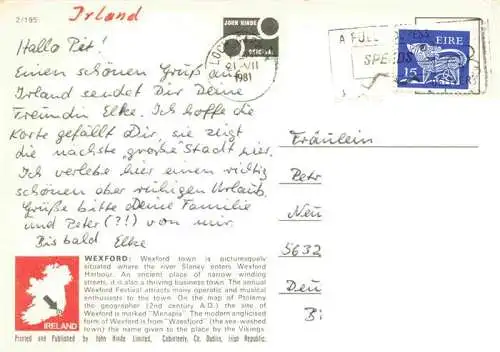 2/195
Irland
JOHN HINDE
ORIGINAL
1981
A FULL
SPEEDS
EIRE
15
Hallo Pet!
Einen schönen Gruß aus
Irland sendet Dir Deine
Freundin Elke. Ich hoffe die
Karte gefällt Dir, sie zeigt
die nächste „große“ Stadt hier.
Ich verlebe hier einen richtig
schönen aber ruhigen Urlaub.
Grüße bitte Deine Familie
und Peter (?!) von mir.
Bis bald Elke
Fräulein
Petr
Neu
5632
Deu
Bi
WEXFORD: Wexford town is picturesquely
situated where the river Slaney enters Wexford
Harbour. An ancient place of narrow winding
streets, it is also a thriving business town. The annual
Wexford Festival attracts many operatic and musical
enthusiasts to the town. On the map of Ptolemy
the geographer (2nd century A.D.) the site of
Wexford is marked "Menapia". The modern anglicised
form of Wexford is from "Waesfjord" (the sea-washed
town) the name given to the place by the Vikings.
IRELAND
Printed and Published by John Hinde Limited, Cabinteely, Co. Dublin, Irish Republic.